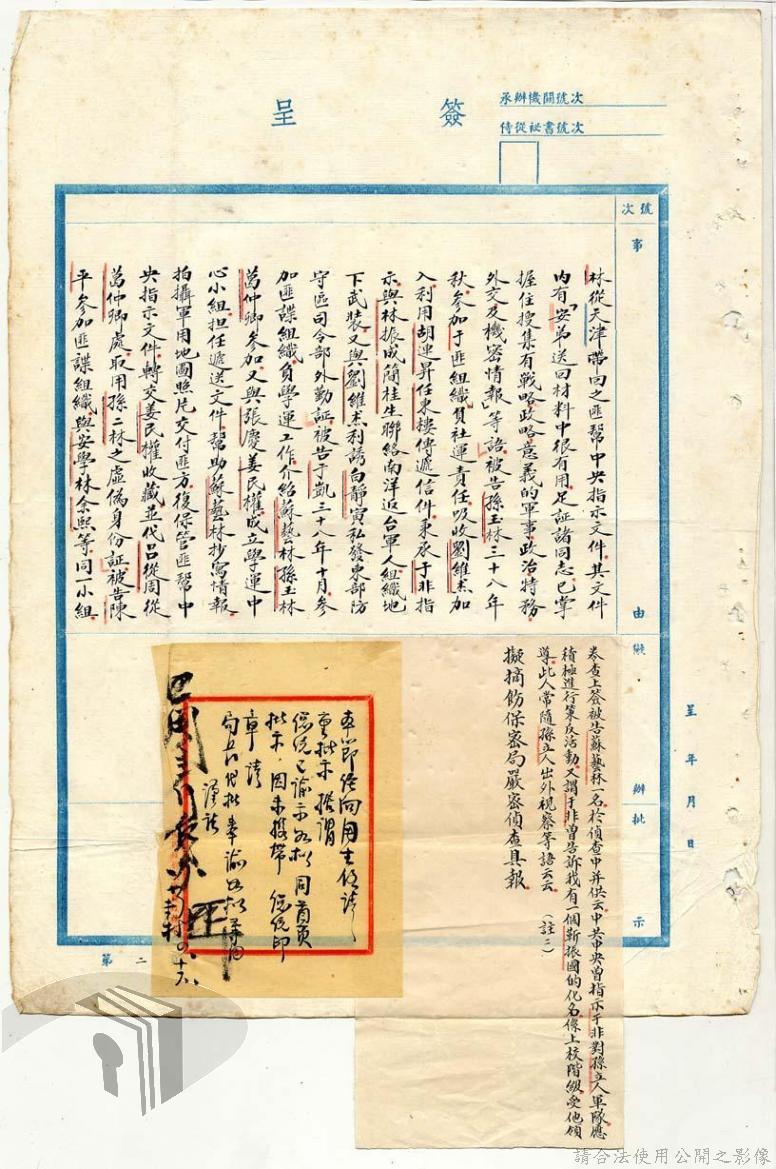 簽呈
承辦機關號次
侍從祕書號次
號次
事由
擬辦
批示
呈 年 月 日
林從天津帶回之匪幫中央指示文件。其文件
內有「安弟送回材料中很有用足証諸同志已掌
握住搜集有戰略政略意義的軍事政治特務
外交及機密情報」等語被告孫玉林三十八年
秋參加于匪組織負社運責任吸收劉維杰加
入利用胡連昇任東樓傳遞信件秉承于非指
示與林振成簡桂生聯絡南洋返台軍人組織地
下武裝又與劉維杰利誘白靜寅私發東部防
守區司令部外勤証被告于凱三十八年十月參
加匪諜組織負學運工作介紹蘇藝林孫玉林
萬仲卿參加又與張慶姜民權成立學運中
心小組担任遞送文件幫助蘇藝林抄寫情報
拍攝軍用地圖照片交付匪方復保管匪幫中
央指示文件轉交姜民權收藏並代呂從周從
萬仲卿處取用孫二林之虛偽身份証被告陳
平參加匪諜組織與安學林余熙等同一小組
本卷查上簽被告蘇藝林一名於偵查中并供云中共中央曾指示于非對孫立人軍隊應
積極進行策反活動又謂于非曾告訴我有一個靳振國的化名係上校階級受他領
導此人常隨孫立人出外視察等語云云 (註二)
擬摘飭保密局嚴密偵查具報
奉即經向周主任請
重批示 據謂
總統已諭示如擬 同首頁
批示,因未攜帶 總統印
章 請
局長代批奉諭如擬等因
謹註
第二
請合法使用公開之影像